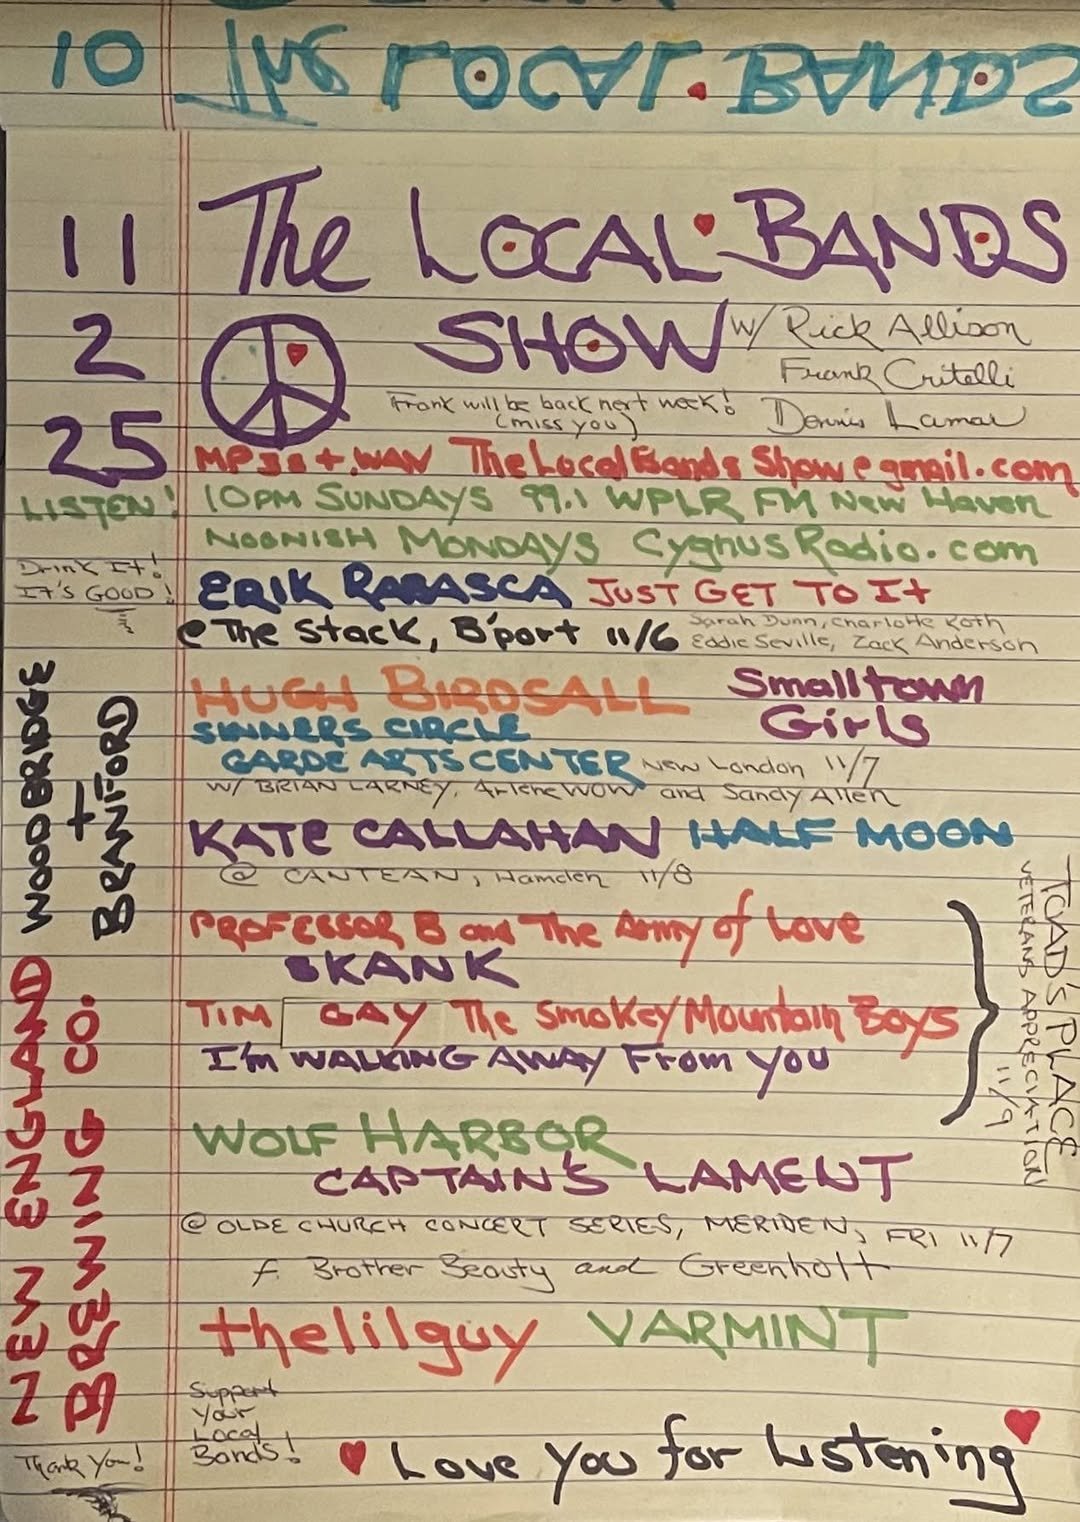 10 The LOCAL BANDS
11 The LOCAL BANDS
2 SHOW w/ Rick Allison
Frank Critelli
Frank will be back next week!
(miss you) Dennis Lamar
25
MP3s + .WAV TheLocalBandsShow@gmail.com
LISTEN! 10PM SUNDAYS 99.1 WPLR FM New Haven
NOONISH MONDAYS CygnusRadio.com
Drink It!
It's GOOD!
ERIK RABASCA JUST GET TO It
@ The Stack, B'port 11/6 Sarah Dunn, Charlotte Koth
Eddie Seville, Zack Anderson
HUGH BIRDSALL Smalltown
Girls
SINNERS CIRCLE
GARDE ARTS CENTER New London 11/7
w/ BRIAN LARNEY, Arlene WOW and Sandy Allen
KATE CALLAHAN HALF MOON
@ CANTEAN, Hamden 11/8
PROFESSOR B and The Army of Love
SKANK
TIM GAY The Smokey Mountain Boys
I'm WALKING AWAY From you
TOAD'S PLACE
VETERANS APPRECIATION
11/9
WOLF HARBOR
CAPTAIN'S LAMENT
@ OLDE CHURCH CONCERT SERIES, MERIDEN, FRI 11/7
f. Brother Beauty and Greenhott
thelilguy VARMINT
WOODBRIDGE
+
BRANFORD
NEW ENGLAND
BREWING CO.
Thank You!
Support
Your
Local
Bands!
Love You for Listening